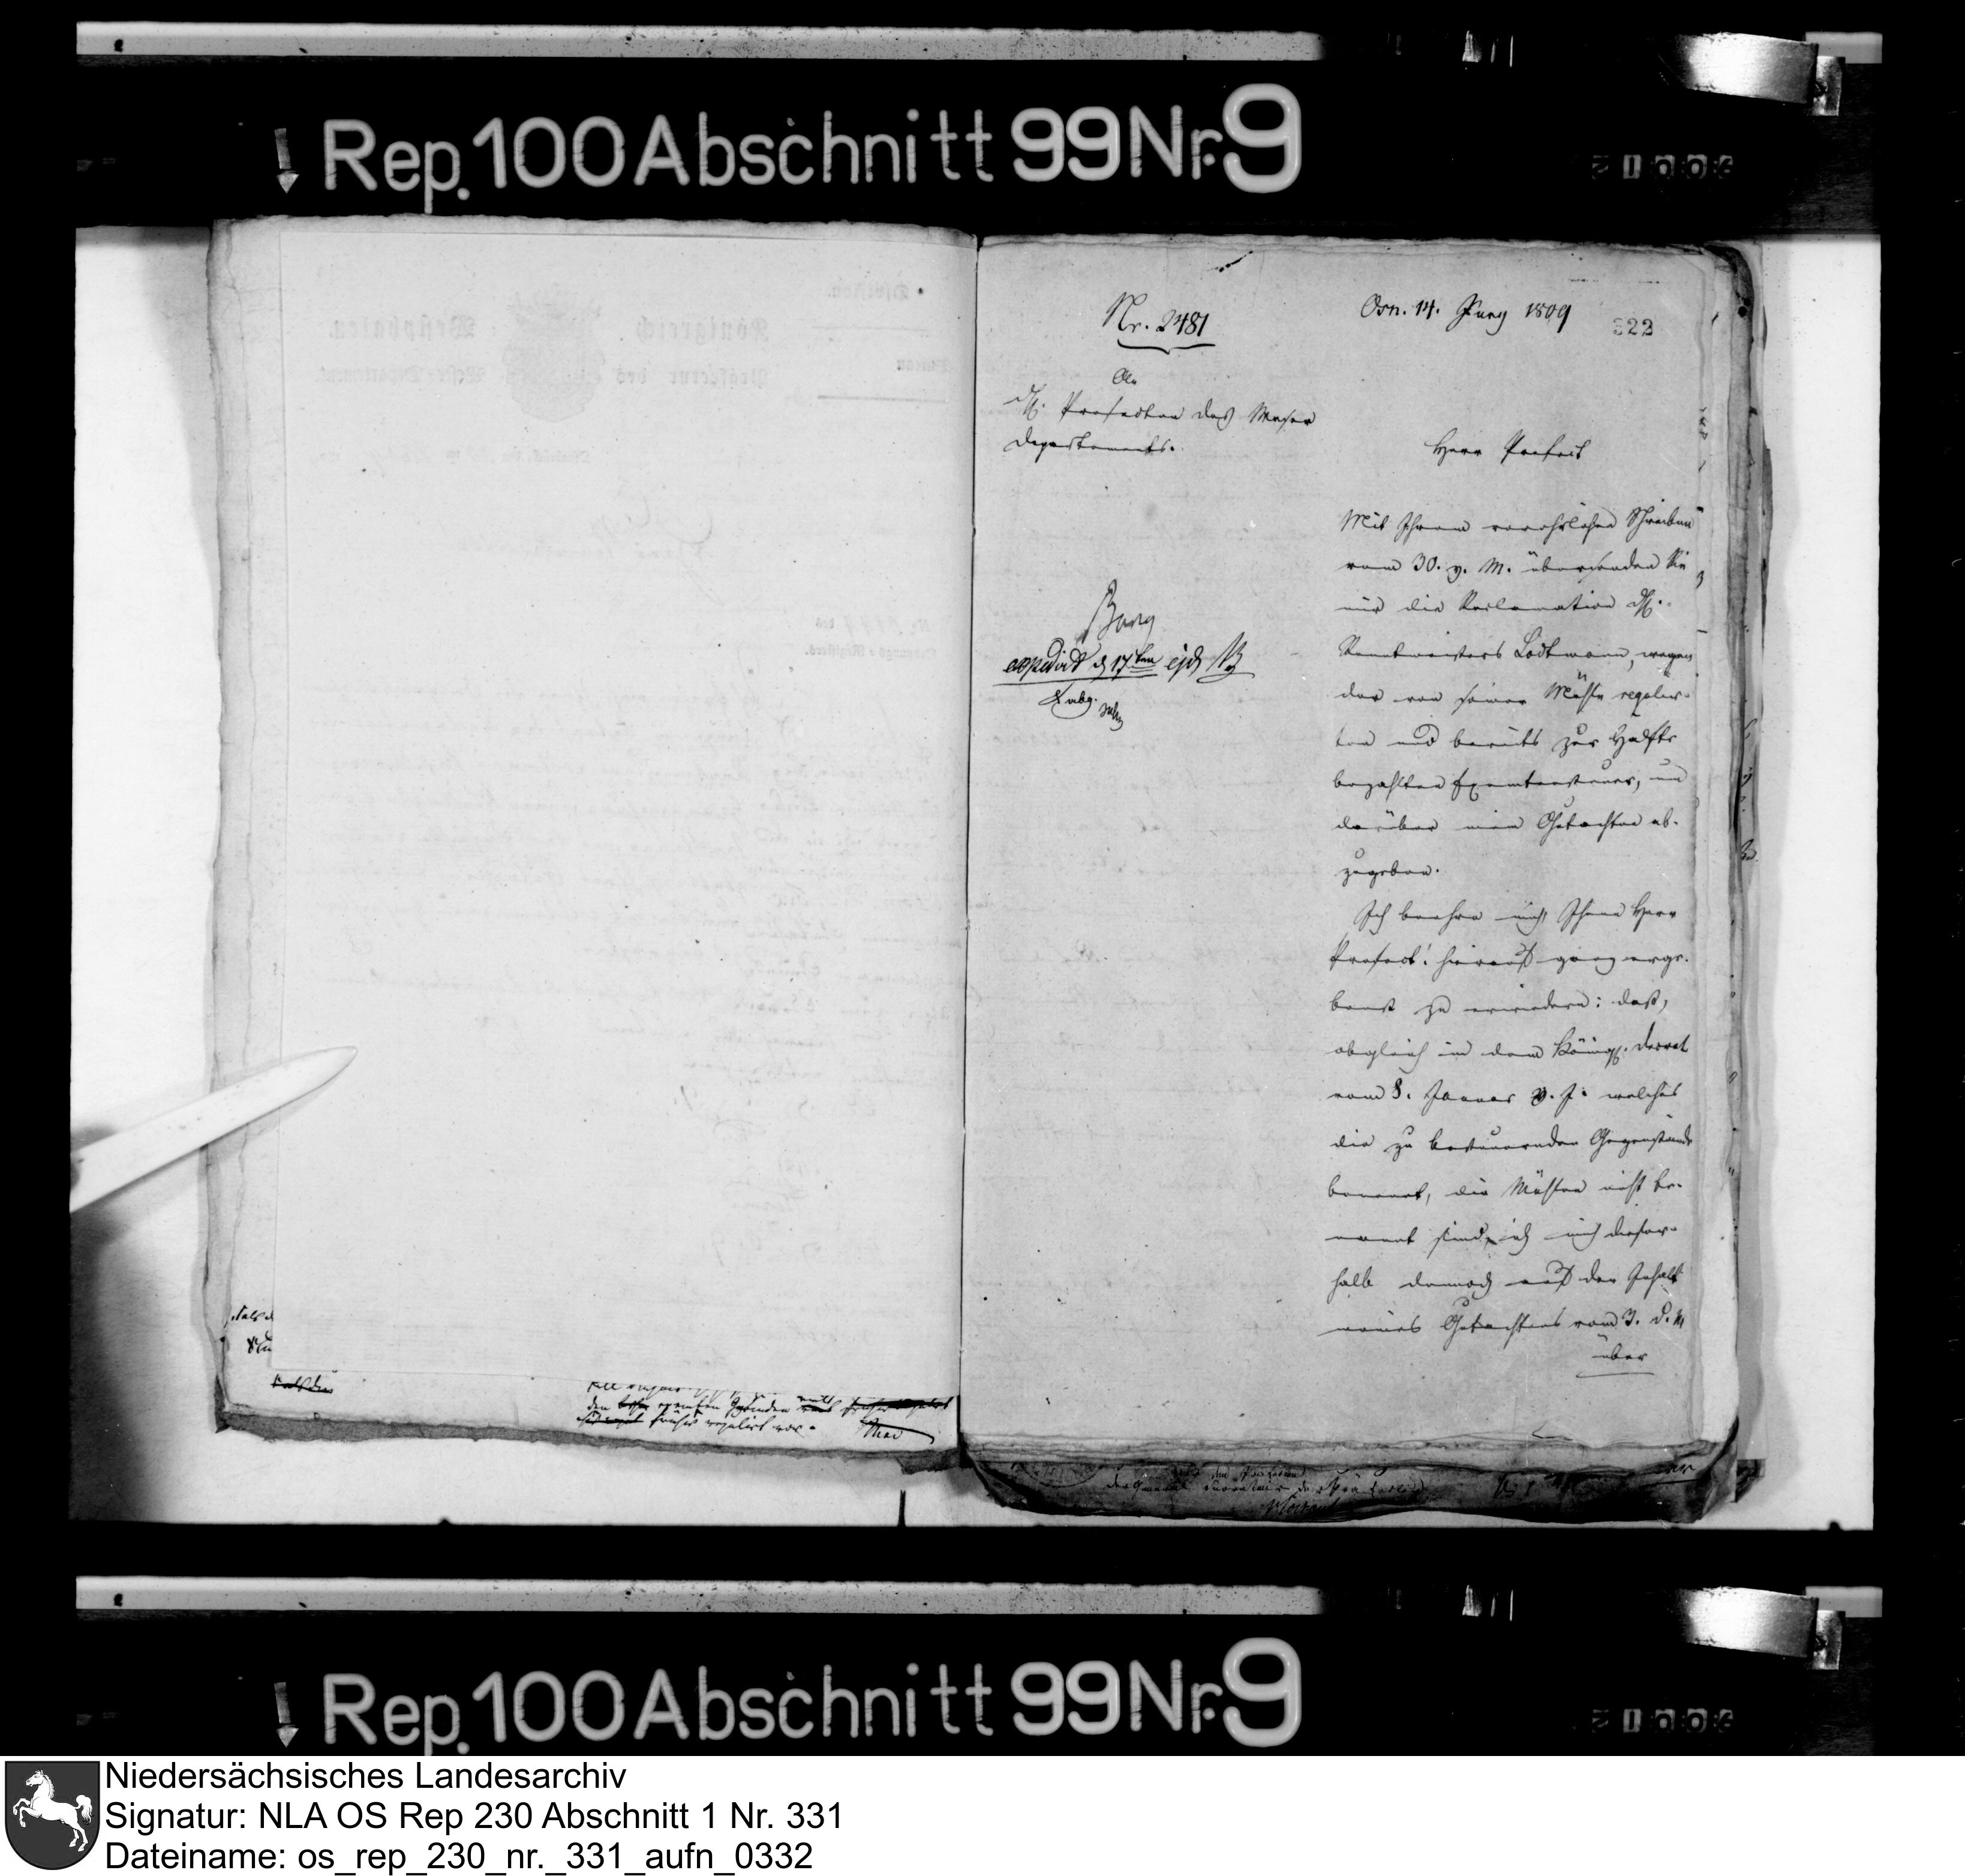 Rep. 100 Abschnitt 99 Nr. 9
21006
Nr. 2481
Osn. 14. Juny 1809
322
An
H. Praefecten des Weser
Departements.
Herr Praefect
Berg
expedirt d 17ten ejd
Mit Ihrem verehrlichen Schreiben
vom 30. v. M. übersenden Sie
mir die Reclamation H.
Rentmeisters Lodtmann, wegen
der von seiner Mühle regulir-
ten und bereits zur Hälfte
bezahlten Exemtensteuer, um
darüber mein Gutachten ab-
zugeben.
Ich beehre mich, Ihnen Herr
Praefect! hierauf ganz erge-
benst zu erwiedern: daß,
obgleich in dem Königl. Decret
vom 8. Januar v. J. welches
die zu besteuernden Gegenstände
benennt, die Mühlen nicht be-
nannt sind, ich mich dieser-
halb dennoch auf den Inhalt
meines Gutachtens vom 3. d. M
über
den exemten Gründen
früher regulirt war.
Rep. 100 Abschnitt 99 Nr. 9
21006
Niedersächsisches Landesarchiv
Signatur: NLA OS Rep 230 Abschnitt 1 Nr. 331
Dateiname: os_rep_230_nr._331_aufn_0332